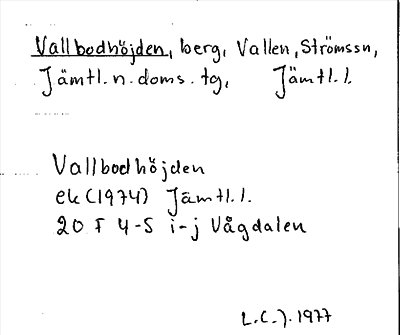 Vallbodhöjden, berg, Vallen, Strömssn,
Jämtl. n. doms. tg, Jämtl. l.
Vallbodhöjden
ek (1974) Jämtl. l.
20 F 4-5 i-j Vågdalen
L.C.J. 1977